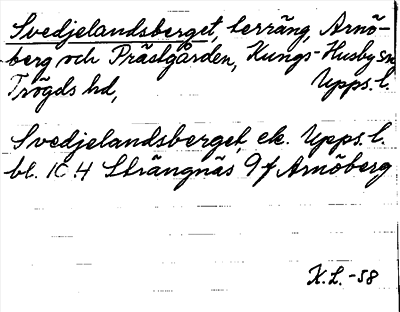 Svedjelandsberget, terräng, Arnö-
berg och Prästgården, Kungs-Husby sn
Trögds hd, Upps. l.
Svedjelandsberget, ek. Upps. l.
bl. 10 H Strängnäs, 9 f Arnöberg
K.L. -58